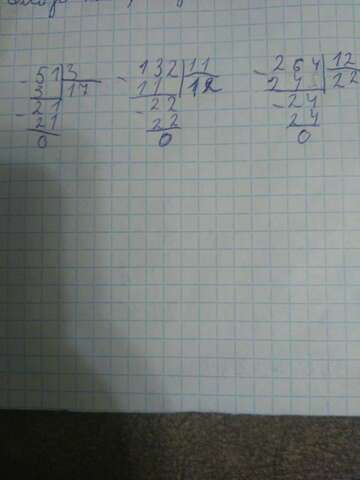 - 51 3
3 17
- 21
21
0
- 132 11
11 12
- 22
22
0
- 264 12
24 22
- 24
24
0